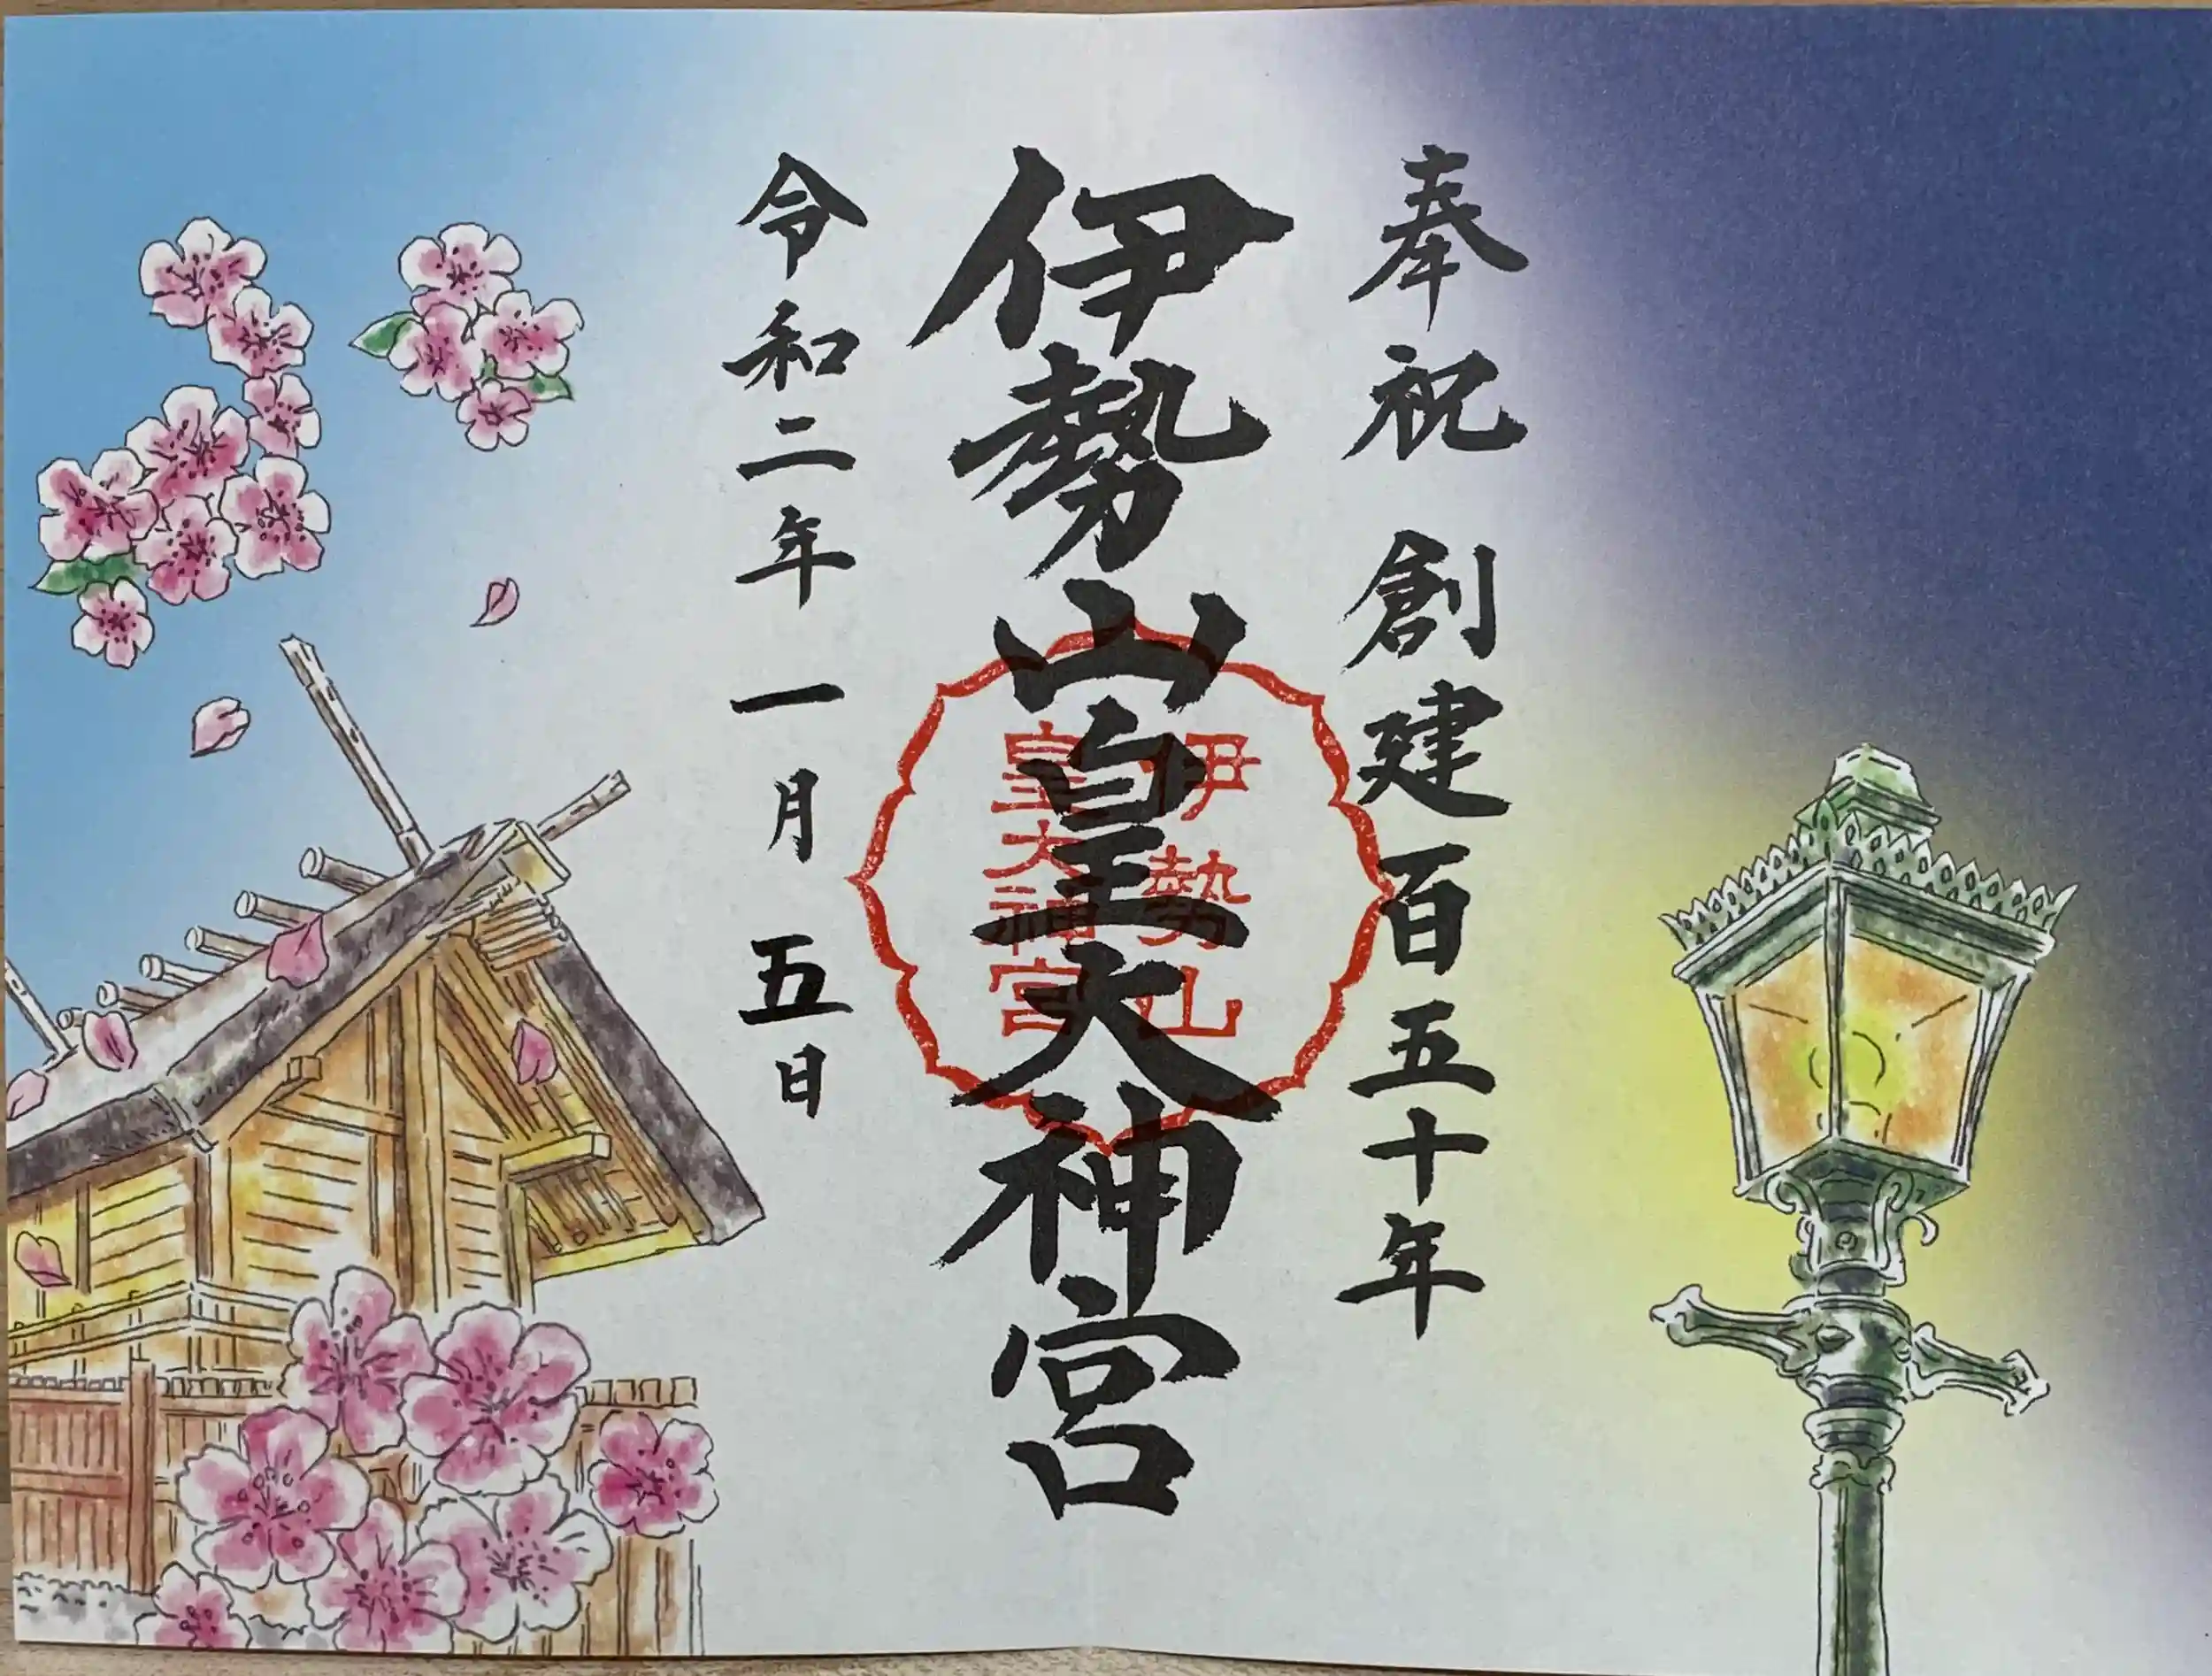 奉祝 創建百五十年
伊勢山皇大神宮
伊勢山
皇大神宮
令和二年 一月 五日